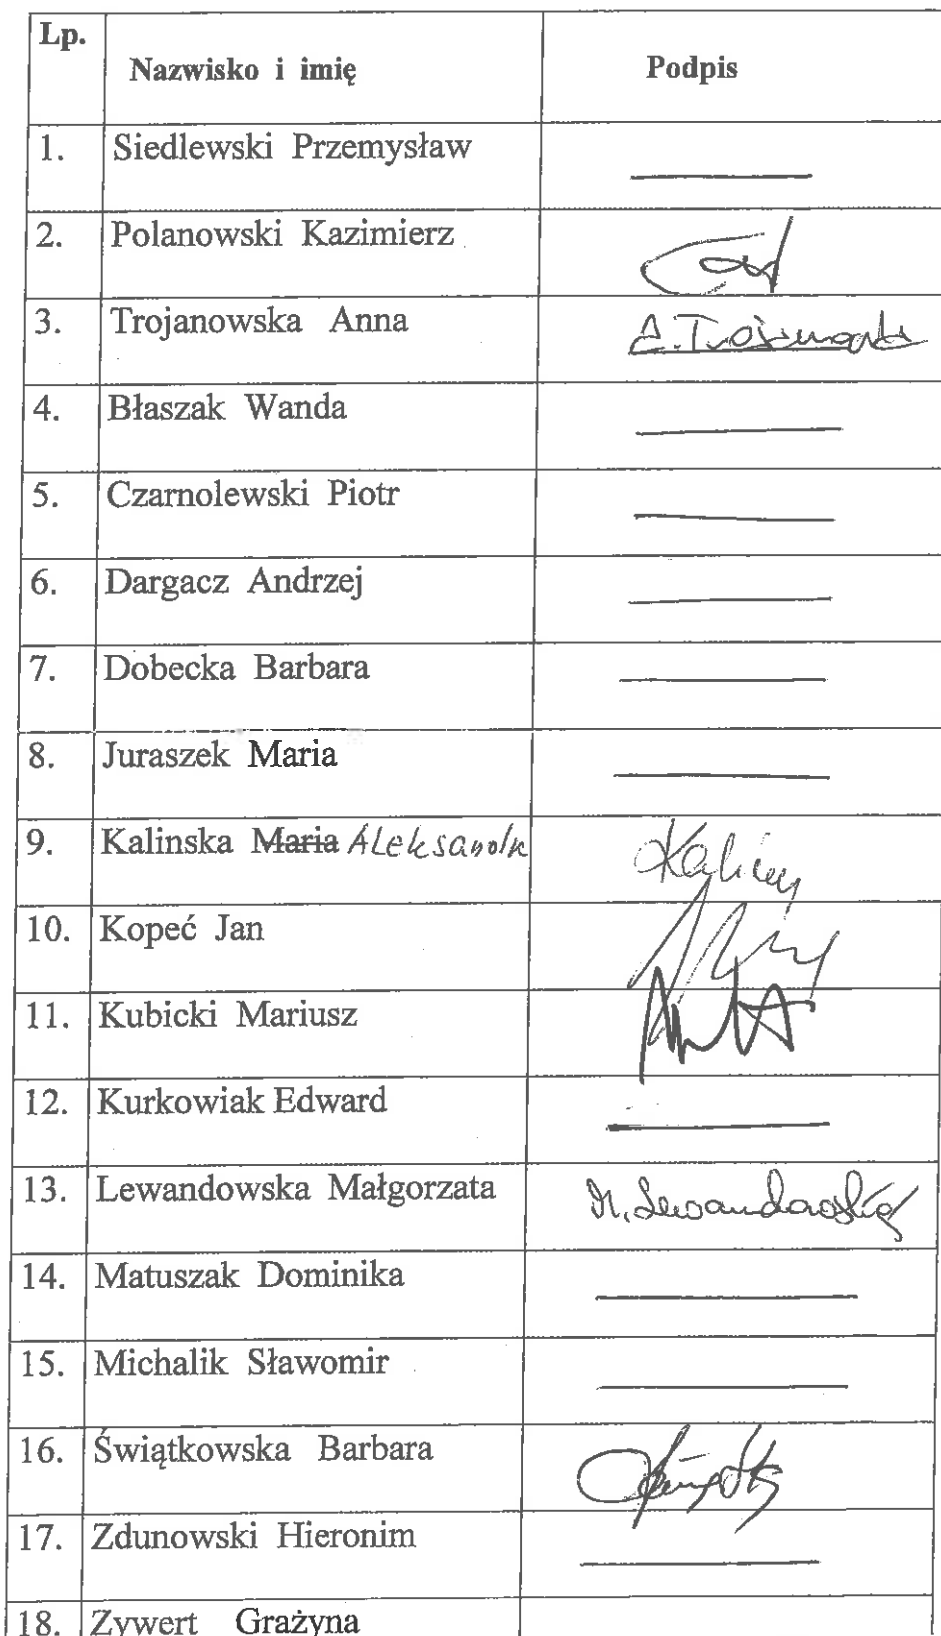 Lp.
Nazwisko i imię Podpis
1. Siedlewski Przemysław
2. Polanowski Kazimierz
3. Trojanowska Anna
4. Błaszak Wanda
5. Czarnolewski Piotr
6. Dargacz Andrzej
7. Dobecka Barbara
8. Juraszek Maria
9. Kalinska Maria Aleksandra
10. Kopeć Jan
11. Kubicki Mariusz
12. Kurkowiak Edward
13. Lewandowska Małgorzata M. Lewandowska
14. Matuszak Dominika
15. Michalik Sławomir
16. Świątkowska Barbara
17. Zdunowski Hieronim
18. Zywert Grażyna